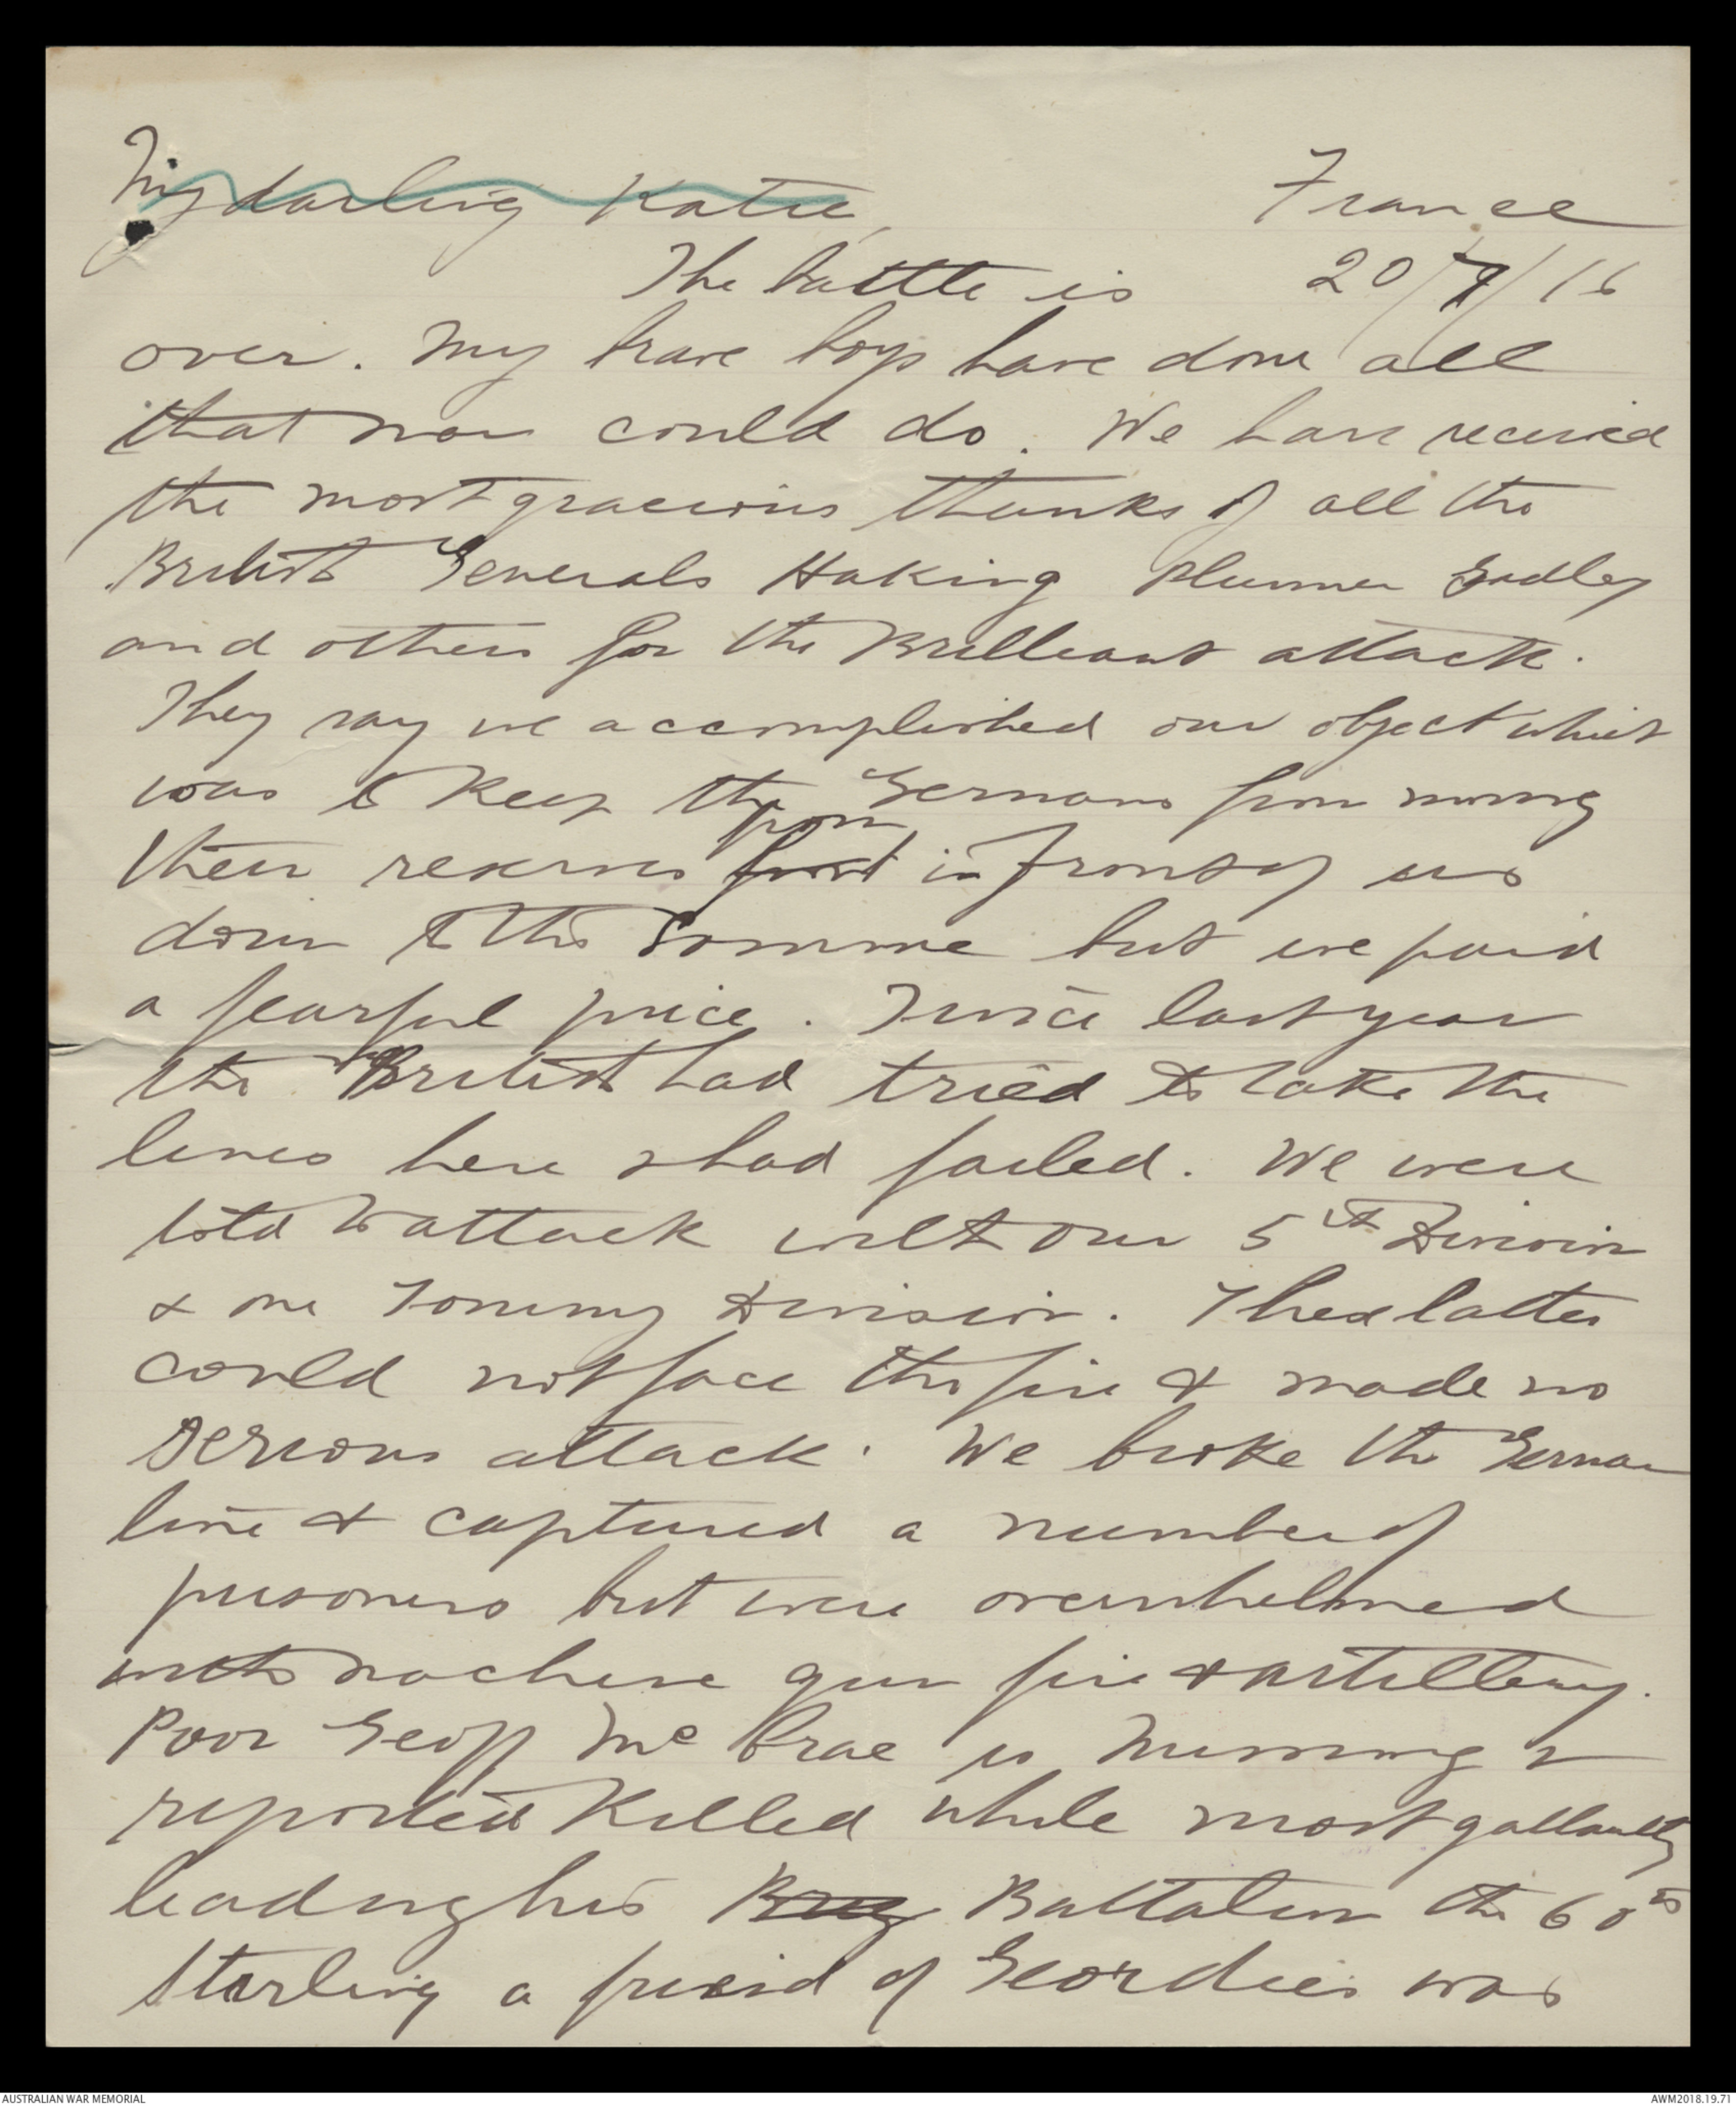 My darling Katie, France
The battle is 20/7/16
over. My brave boys have done all
that man could do. We have received
the most gracious thanks of all the
British Generals Haking Plumer Godley
and others for the Brilliant attack.
They say we accomplished our object which
was to keep the Germans from moving
from
their reserves front in front of us
down to the Somme but we paid
a fearful price. Twice last year
the British had tried to take the
lines here & had failed. We were
told to attack with our 5th Division
& one Tommy Division. These latter
could not face the fire & made no
serious attack. We broke the German
line & captured a number of
prisoners but were overwhelmed
with machine gun fire & artillery.
Poor Geoff McCrae is missing &
reported killed while most gallantly
leading his Brig Battalion the 60th
Sterling a friend of Geordies was
AUSTRALIAN WAR MEMORIAL AWM2018.19.71